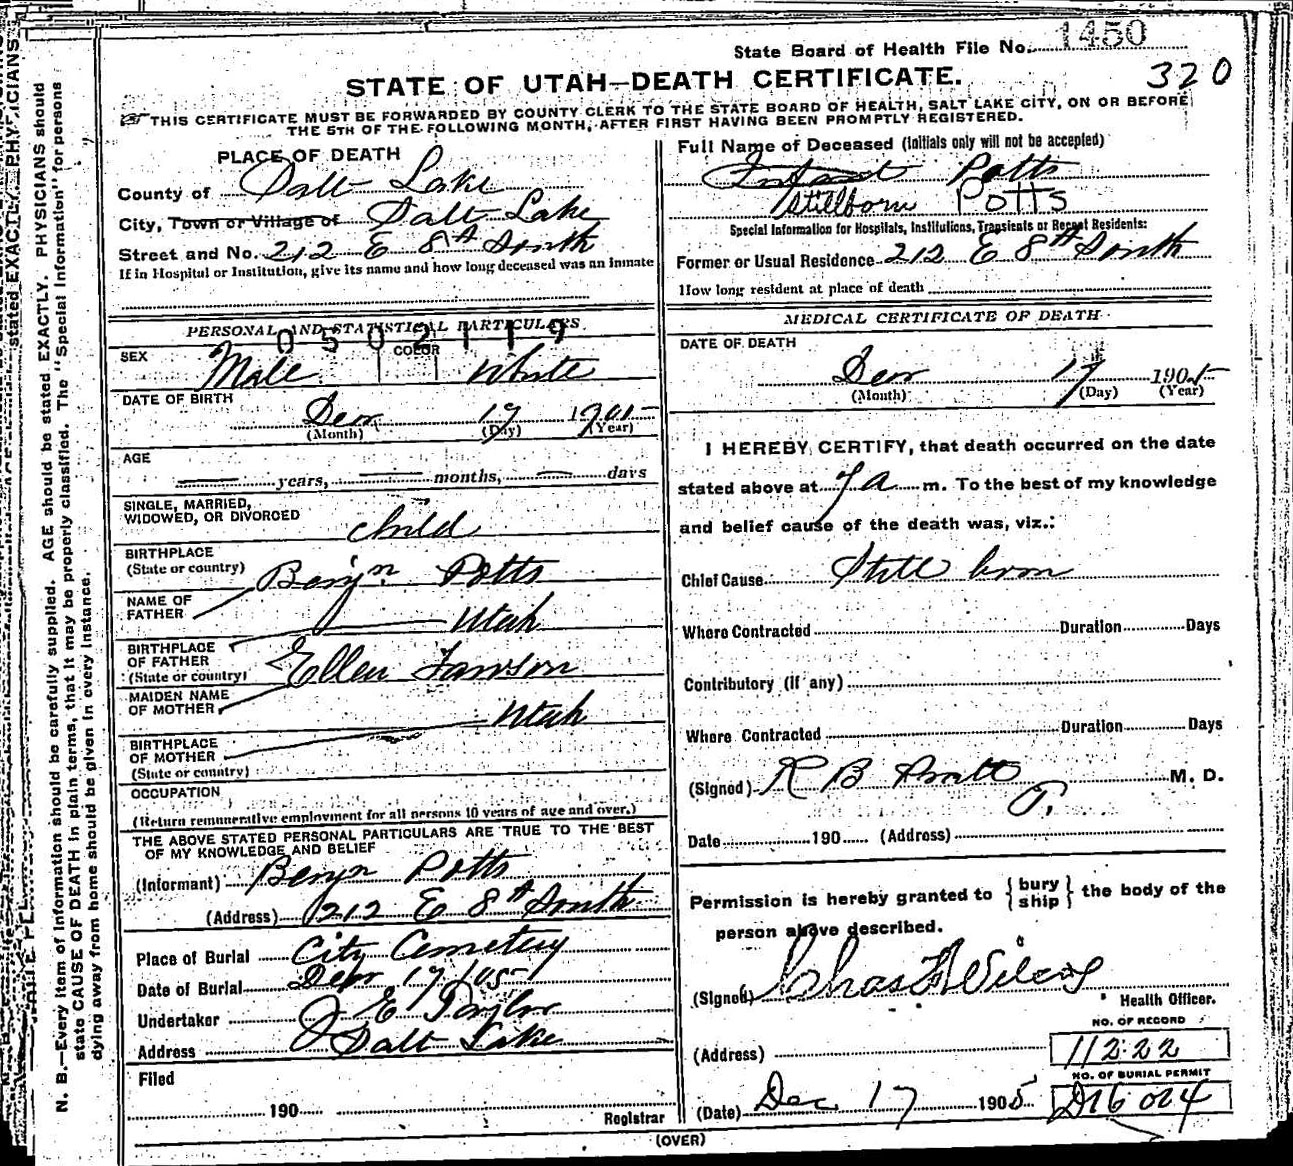 State Board of Health File No. 1450
320
STATE OF UTAH—DEATH CERTIFICATE.
THIS CERTIFICATE MUST BE FORWARDED BY COUNTY CLERK TO THE STATE BOARD OF HEALTH, SALT LAKE CITY, ON OR BEFORE
THE 5TH OF THE FOLLOWING MONTH, AFTER FIRST HAVING BEEN PROMPTLY REGISTERED.
PLACE OF DEATH
County of Salt Lake
City, Town or Village of Salt Lake
Street and No. 212 E 8th South
If in Hospital or Institution, give its name and how long deceased was an inmate
PERSONAL AND STATISTICAL PARTICULARS
0502119
SEX Male COLOR White
DATE OF BIRTH Dec 17 1905
(Month) (Day) (Year)
AGE
years, months, days
SINGLE, MARRIED,
WIDOWED, OR DIVORCED child
BIRTHPLACE
(State or country) Benjn Potts
NAME OF
FATHER Utah
BIRTHPLACE
OF FATHER
(State or country) Ellen Lawson
MAIDEN NAME
OF MOTHER Utah
BIRTHPLACE
OF MOTHER
(State or country)
OCCUPATION
(Return remunerative employment for all persons 10 years of age and over.)
THE ABOVE STATED PERSONAL PARTICULARS ARE TRUE TO THE BEST
OF MY KNOWLEDGE AND BELIEF
(Informant) Benjn Potts
(Address) 212 E 8th South
Place of Burial City Cemetery
Date of Burial Decr 17/05
Undertaker J E Taylor
Address Salt Lake
Filed
190
Registrar
Full Name of Deceased (Initials only will not be accepted)
Infant Potts
Stillborn Potts
Special Information for Hospitals, Institutions, Transients or Recent Residents:
Former or Usual Residence 212 E 8th South
How long resident at place of death
MEDICAL CERTIFICATE OF DEATH
DATE OF DEATH
Dec 17 1905
(Month) (Day) (Year)
I HEREBY CERTIFY, that death occurred on the date
stated above at 7 a m. To the best of my knowledge
and belief cause of the death was, viz.:
Chief Cause Still born
Where Contracted Duration Days
Contributory (if any)
Where Contracted Duration Days
(Signed) R B Pratt M. D.
Date 190 (Address)
Permission is hereby granted to { bury ship } the body of the
person above described.
(Signed) Chas F Wilcox
Health Officer.
NO. OF RECORD
(Address) 11222
NO. OF BURIAL PERMIT
(Date) Dec 17 1905
(OVER)
N. B.—Every item of information should be carefully supplied. AGE should be stated EXACTLY. PHYSICIANS should
state CAUSE OF DEATH in plain terms, that it may be properly classified. The "Special Information" for persons
dying away from home should be given in every instance.